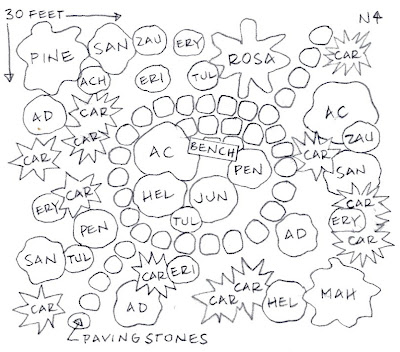 30 FEET
N
PINE
SAN
ZAU
ERY
ROSA
CAR
ACH
ERI
TUL
AD
CAR
CAR
AC
ZAU
AC
BENCH
PEN
CAR
SAN
CAR
CAR
HEL
JUN
CAR
ERY
ERY
TUL
PEN
AD
CAR
SAN
TUL
CAR
ERI
CAR
AD
CAR
CAR
HEL
MAH
PAVING STONES